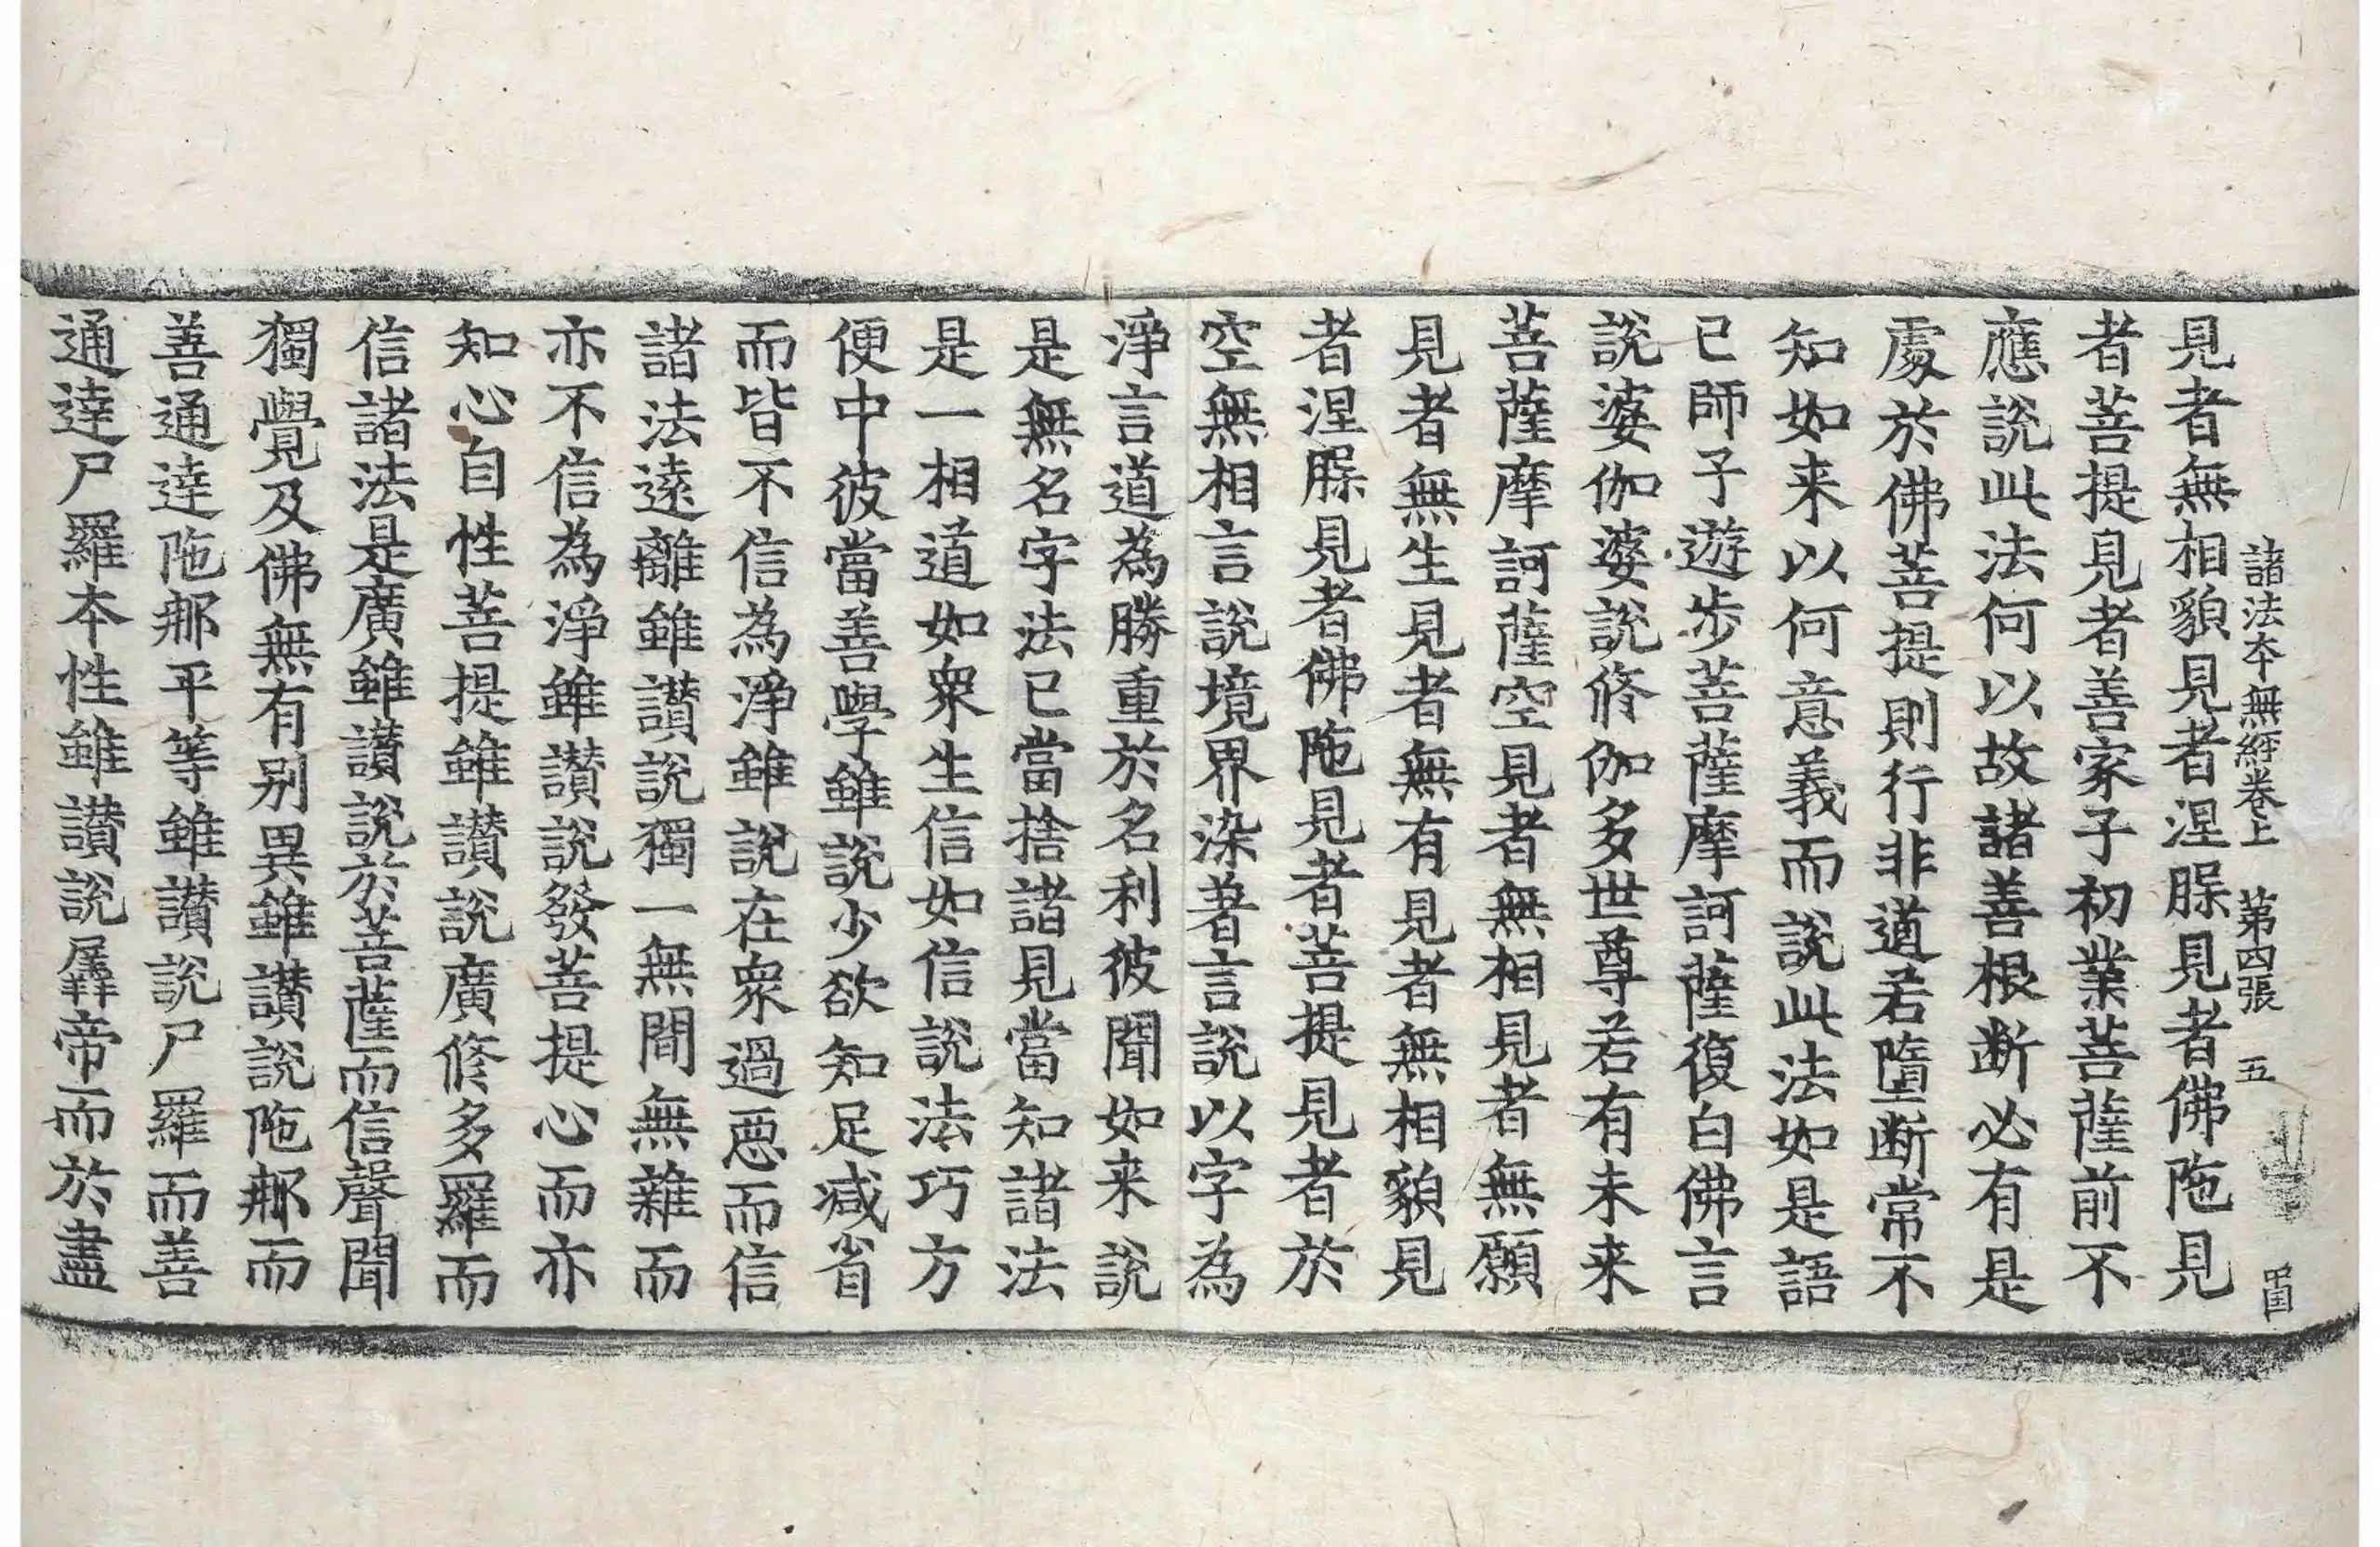 諸法本無經卷上　第四張　五
見者無相貌見者涅𦞦見者佛陁見
者菩提見者善家子初業菩薩前不
應說此法何以故諸善根断必有是
處於佛菩提則行非道若墮断常不
知如来以何意義而說此法如是語
已師子遊步菩薩摩訶薩復白佛言
說婆伽婆說修伽多世尊若有未来
菩薩摩訶薩空見者無相見者無願
見者無生見者無有見者無相貌見
者涅𦞦見者佛陁見者菩提見者於
空無相言說境界染著言說以字為
淨言道為勝重於名利彼聞如来說
是無名字法已當捨諸見當知諸法
是一相道如衆生信如信說法巧方
便中彼當善學雖說少欲知足减省
而皆不信為淨雖說在衆過惡而信
諸法遠離雖讃說獨一無間無雜而
亦不信為淨雖讃說發菩提心而亦
知心自性菩提雖讃說廣修多羅而
信諸法是廣雖讃說於菩薩而信聲聞
獨覺及佛無有別異雖讃說陁𨚗而
善通達陁𨚗平等雖讃說尸羅而善
通達尸羅本性雖讃說羼帝而於盡